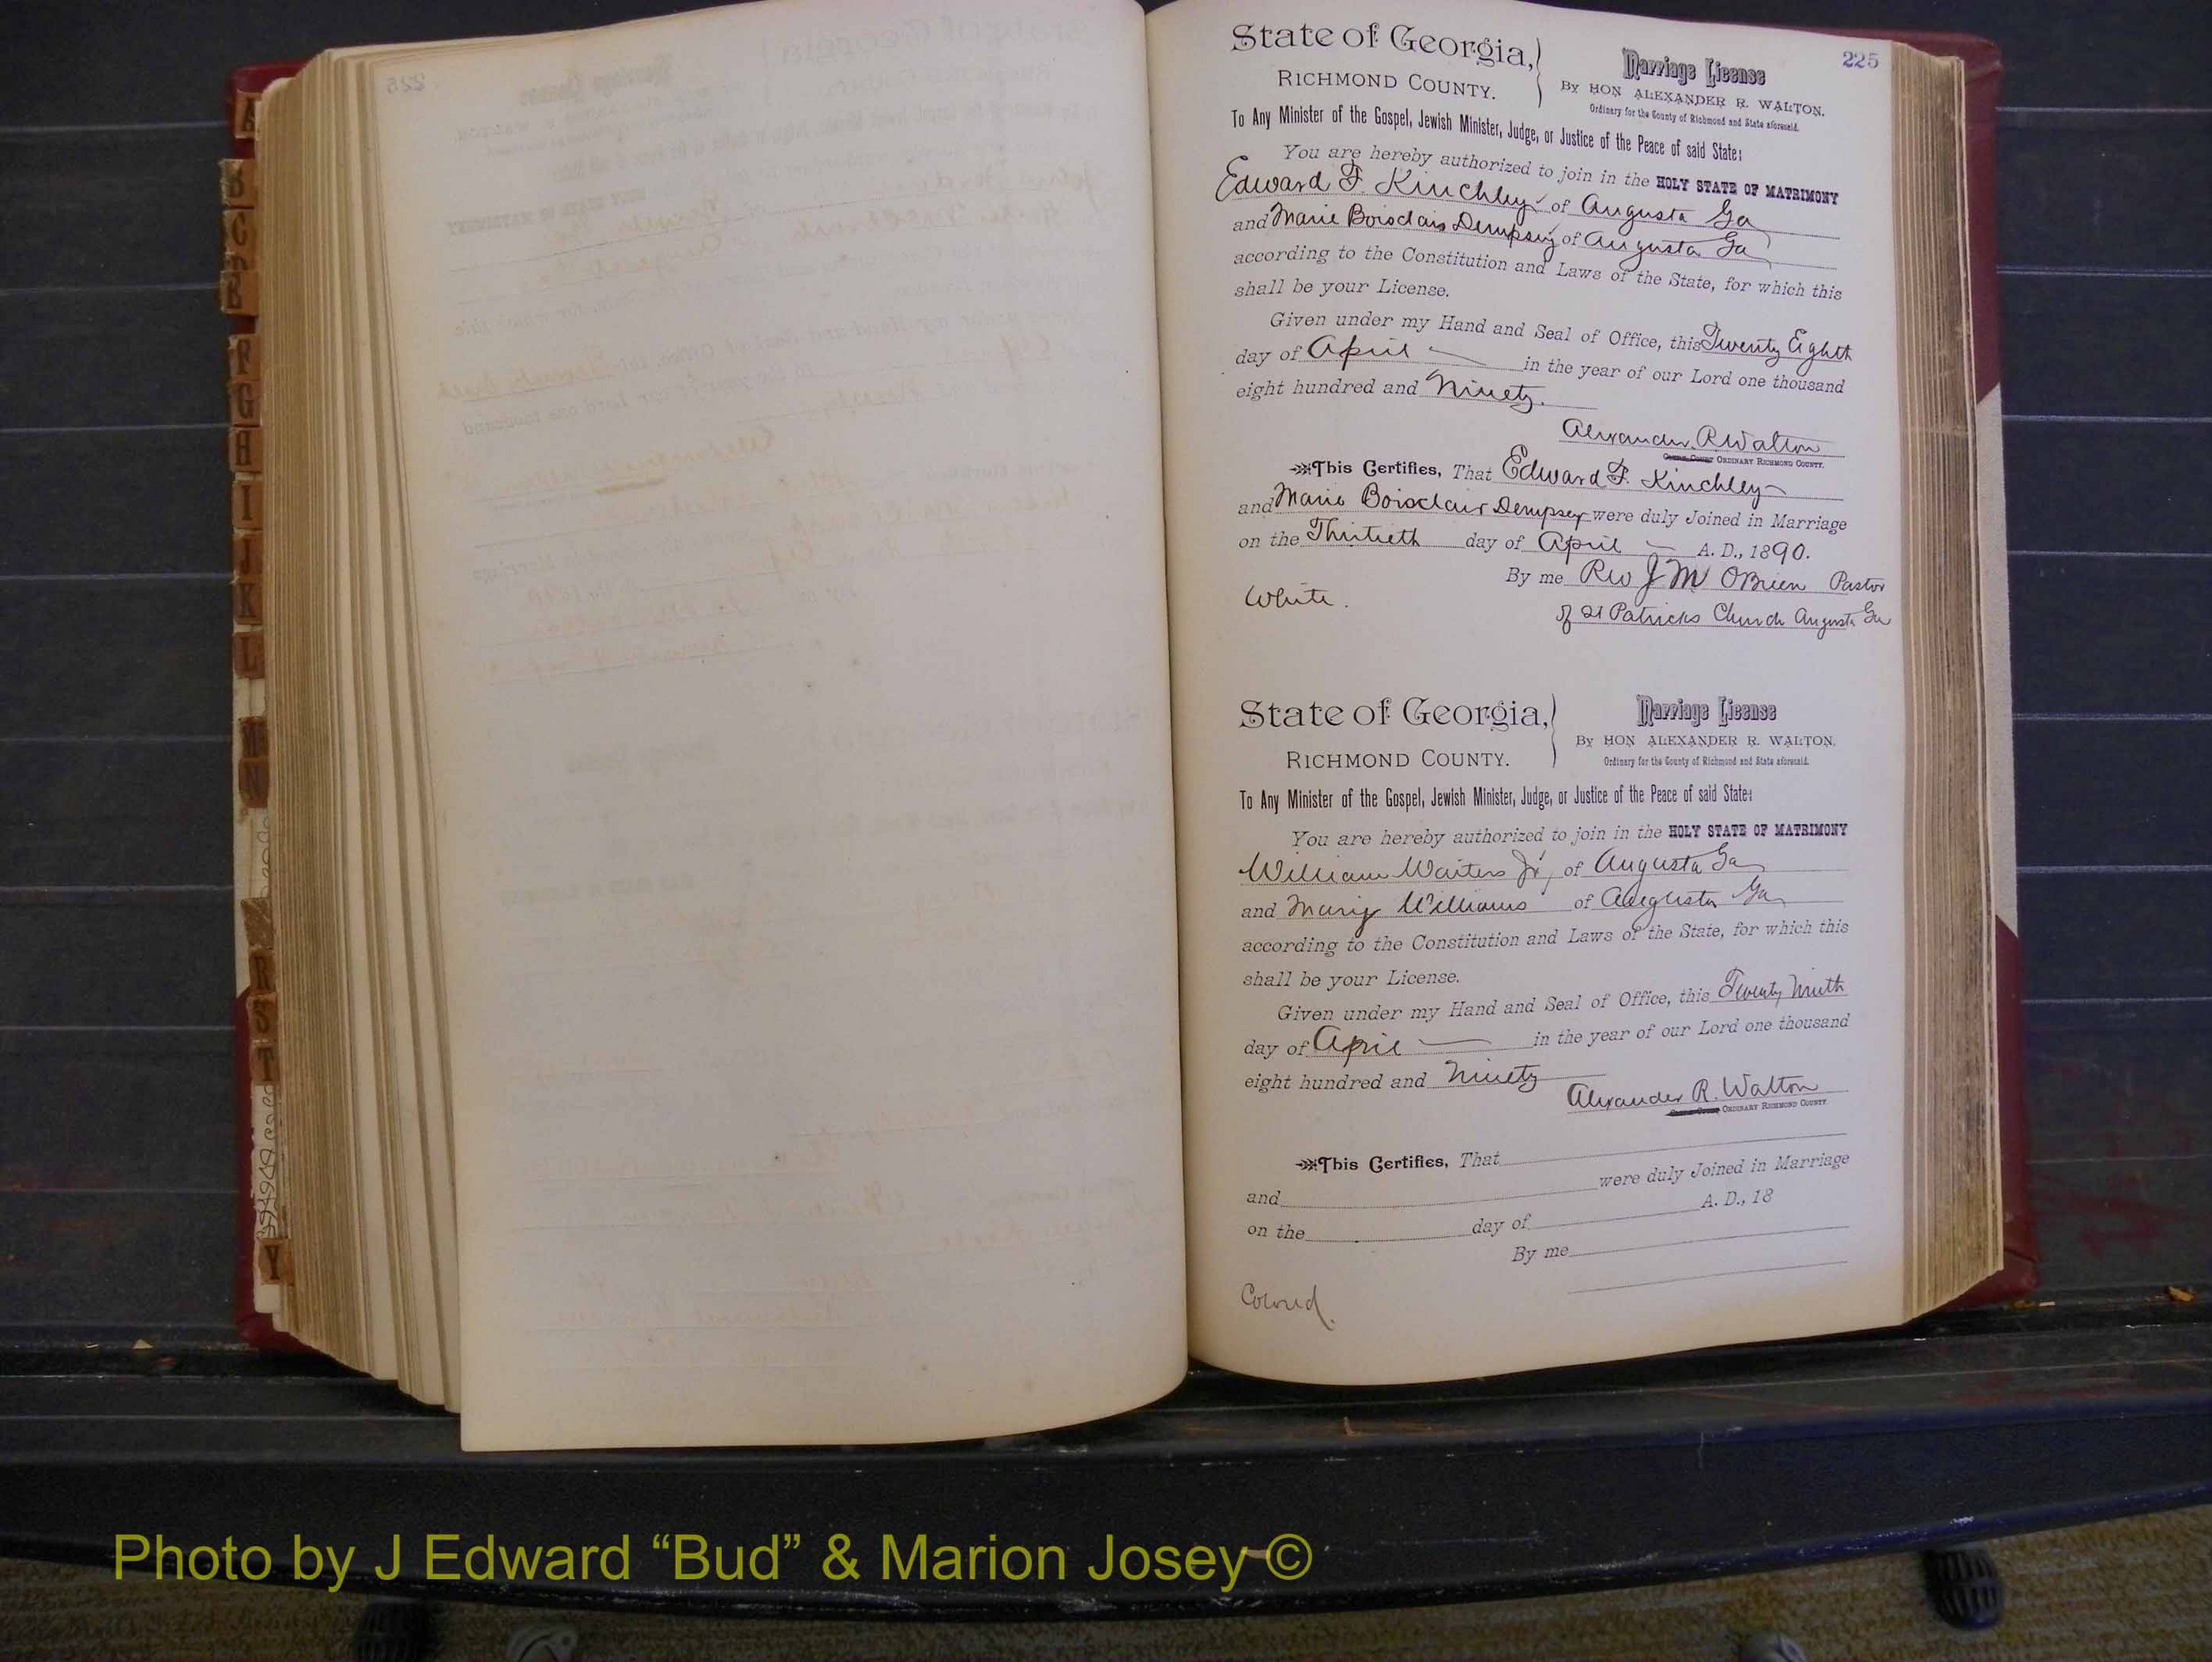 225
State of Georgia,
RICHMOND COUNTY.
Marriage License
By HON ALEXANDER R. WALTON.
Ordinary for the County of Richmond and State aforesaid.
To Any Minister of the Gospel, Jewish Minister, Judge, or Justice of the Peace of said State:
You are hereby authorized to join in the HOLY STATE OF MATRIMONY
Edward F. Kinchley of Augusta Ga
and Marie Boisclair Dempsey of Augusta Ga
according to the Constitution and Laws of the State, for which this
shall be your License.
Given under my Hand and Seal of Office, this Twenty Eighth
day of April in the year of our Lord one thousand
eight hundred and Ninety.
Alexander R Walton
ORDINARY RICHMOND COUNTY.
This Certifies, That Edward F. Kinchley
and Marie Boisclair Dempsey were duly Joined in Marriage
on the Thirtieth day of April A. D., 1890.
By me Rev J M OBrien Pastor
of St Patricks Church Augusta Ga
White.
State of Georgia,
RICHMOND COUNTY.
Marriage License
By HON ALEXANDER R. WALTON.
Ordinary for the County of Richmond and State aforesaid.
To Any Minister of the Gospel, Jewish Minister, Judge, or Justice of the Peace of said State:
You are hereby authorized to join in the HOLY STATE OF MATRIMONY
William Waiters Jr, of Augusta Ga
and Mary Williams of Augusta Ga
according to the Constitution and Laws of the State, for which this
shall be your License.
Given under my Hand and Seal of Office, this Twenty Ninth
day of April in the year of our Lord one thousand
eight hundred and Ninety
Alexander R. Walton
ORDINARY RICHMOND COUNTY.
This Certifies, That
and were duly Joined in Marriage
on the day of A. D., 18
By me
Colored.
A
B
C
F
G
H
I
J
K
L
M
N
R
S
T
Y
Photo by J Edward “Bud” & Marion Josey ©